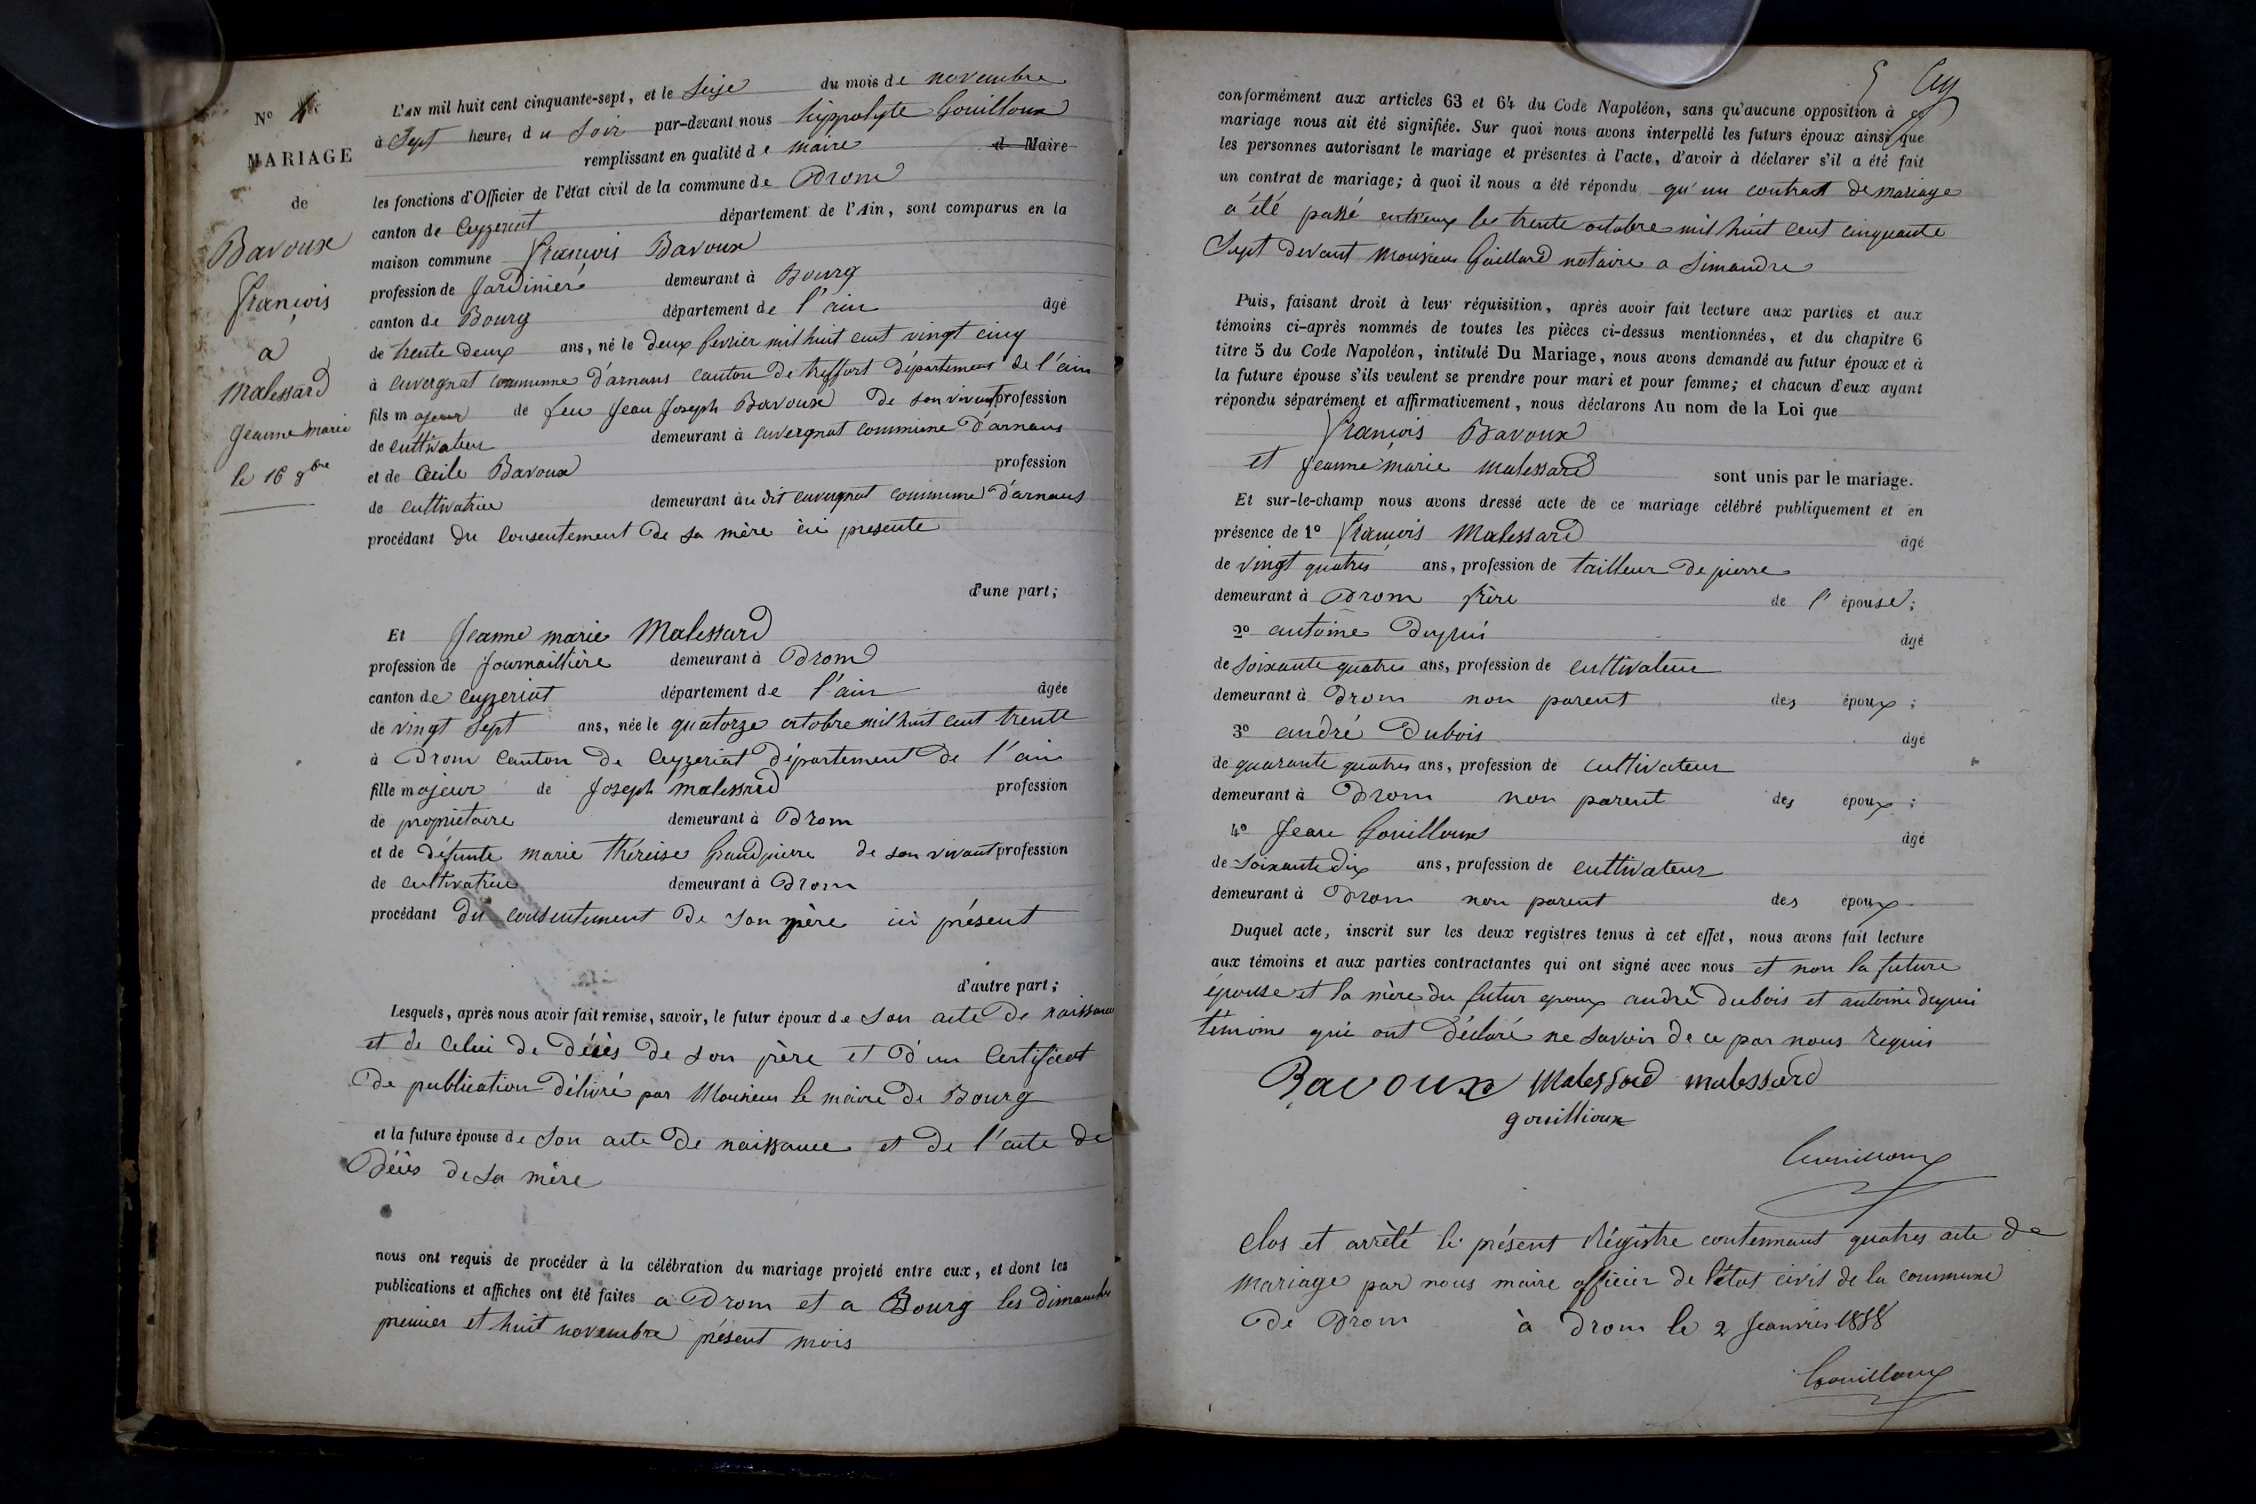 N° 4
MARIAGE
de
Bavoux
françois
à
Malessard
Jeanne marie
le 16 9bre
L'AN mil huit cent cinquante-sept, et le Seize du mois de novembre
à Sept heures du Soir par-devant nous hippolyte Gouilloux
remplissant en qualité de maire d Maire
les fonctions d'Officier de l'état civil de la commune de Drom
canton de Ceyzeriat département de l'Ain, sont comparus en la
maison commune françois Bavoux
profession de Jardinier demeurant à Bourg
canton de Bourg département de l'ain âgé
de trente deux ans, né le deux fevrier mil huit cent vingt cinq
à cuvergnat commune d'arnans canton de treffort Département de l'ain
fils majeur de feu Jean Joseph Bavoux de son vivant profession
de cultivateur demeurant à cuvergnat commune d'arnans
et de Cecile Bavoux profession
de cultivatrice demeurant à u dit cuvergnat commune d'arnans
procédant du Consentement de sa mère ici presente
d'une part;
Et Jeanne marie Malessard
profession de Journaillière demeurant à Drom
canton de Ceyzeriat département de l'ain âgée
de vingt Sept ans, née le quatorze octobre mil huit cent trente
à Drom Canton de Ceyzeriat Département de l'ain
fille majeur de Joseph malessard profession
de propriétaire demeurant à Drom
et de défunte marie théreise Grandpierre de son vivant profession
de cultivatrice demeurant à Drom
procédant du consentement de son père ici présent
d'autre part;
Lesquels, après nous avoir fait remise, savoir, le futur époux de son acte de naissance
et de Celui de Décès de son père et d'un Certificat
de publication délivré par Monsieur le maire de Bourg
et la future épouse de son acte de naissance et de l'acte de
Décès de sa mère
nous ont requis de procéder à la célébration du mariage projeté entre eux, et dont les
publications et affiches ont été faites a Drom et a Bourg les dimanche
premier et huit novembre présent mois
5
conformément aux articles 63 et 64 du Code Napoléon, sans qu'aucune opposition à ce
mariage nous ait été signifiée. Sur quoi nous avons interpellé les futurs époux ainsi que
les personnes autorisant le mariage et présentes à l'acte, d'avoir à déclarer s'il a été fait
un contrat de mariage; à quoi il nous a été répondu qu'un contrat de mariage
a été passé entr'eux le trente octobre mil huit cent cinquante
Sept devant Monsieur Gaillard notaire a Simandre
Puis, faisant droit à leur réquisition, après avoir fait lecture aux parties et aux
témoins ci-après nommés de toutes les pièces ci-dessus mentionnées, et du chapitre 6
titre 5 du Code Napoléon, intitulé Du Mariage, nous avons demandé au futur époux et à
la future épouse s'ils veulent se prendre pour mari et pour femme; et chacun d'eux ayant
répondu séparément et affirmativement, nous déclarons Au nom de la Loi que
françois Bavoux
et Jeanne marie malessard sont unis par le mariage.
Et sur-le-champ nous avons dressé acte de ce mariage célébré publiquement et en
présence de 1° françois Malessard âgé
de vingt quatres ans, profession de tailleur de pierre
demeurant à Drom frère de l'épouse;
2° antoine Dupui âgé
de soixante quatres ans, profession de cultivateur
demeurant à Drom non parent des époux;
3° andré Dubois âgé
de quarante quatres ans, profession de cultivateur
demeurant à Drom non parent des époux;
4° Jean Gouilloux âgé
de soixante dix ans, profession de cultivateur
demeurant à Drom non parent des époux
Duquel acte, inscrit sur les deux registres tenus à cet effet, nous avons fait lecture
aux témoins et aux parties contractantes qui ont signé avec nous et non la future
épouse et la mère du futur epoux andré dubois et antoine dupui
témoins qui ont déclaré ne savoir de ce par nous requis
Bavoux Malessard malessard
gouillioux
Gouilloux
Clos et arrêté le présent Régistre contennant quatres acte de
mariage par nous maire officier de l'état civil de la commune
de Drom à Drom le 2 Jeanvier 1858
Gouilloux